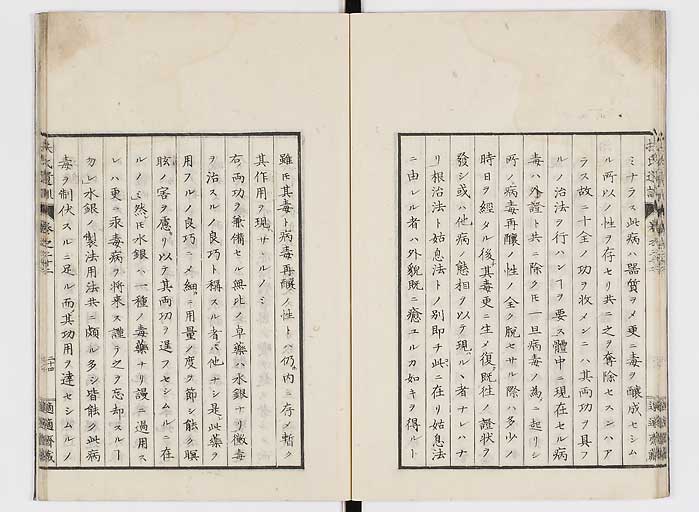 ミナラス此病ハ器質ヲメ更ニ毒ヲ醸成セシム
ル所以ノ性ヲ存セリ共ニ之ヲ奪除セスンハア
ラス故ニ十全ノ功ヲ收メンニハ其兩功ヲ具フ
ルノ治法ヲ行ハンヿヲ要ス體中ニ現在セル病
毒ハ外證ト共ニ除クモ一旦病毒ノ為ニ起リシ
所ノ病毒再釀ノ性ノ全ク脱セサル際ハ多少ノ
時日ヲ經タル後其毒更ニ生メ復既往ノ證狀ヲ
發シ或ハ他病ノ態相ヲ以テ現ルヽ者ナレハナ
リ根治法ト姑息法トノ別即チ此ニ在リ姑息法
ニ由レル者ハ外貌既ニ癒ユルカ如キヲ得ルト
雖モ其毒ト病毒再釀ノ性トハ仍内ニ存メ暫ク
其作用ヲ現サヽルノミ
右ノ兩功ヲ兼備セル無比ノ卓藥ハ水銀ナリ黴毒
ヲ治スルノ良巧ト稱スル者ハ他ナシ是此藥ヲ
用フルノ良巧ニメ細ニ用量ノ度ヲ節シ能ク瞑
眩ノ害ヲ慮リ以テ其兩功ヲ逞フセシムルニ在
ルノミ然モ水銀ハ一種ノ毒藥ナリ謾ニ過用ス
レハ更ニ汞毒病ヲ將來ス謹テ之ヲ忘却スルヿ
勿レ水銀ノ製法用法共ニ頗ル多シ皆能ク此病
毒ヲ制伏スルニ足ル而其功用ヲ達セシムルノ
扶氏遺訓 卷之二十二
二十四
適適齋藏